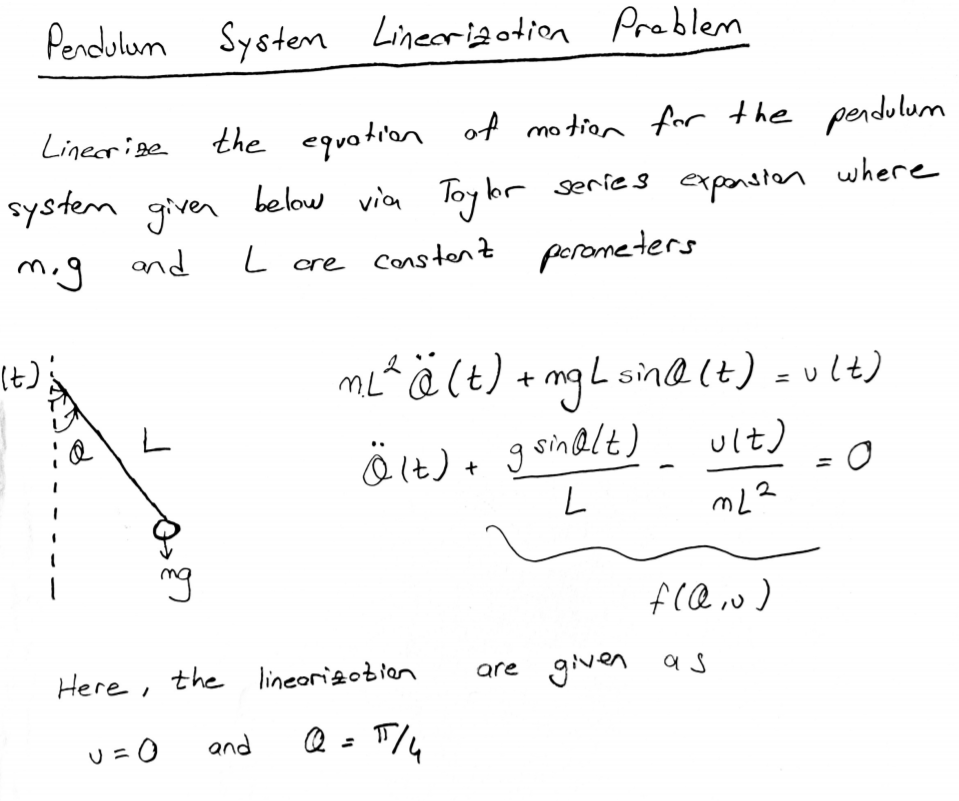 Pendulum System Linearization Problem
Linearize the equation of motion for the pendulum
system given below via Taylor series expansion where
m,g and L are constant parameters
(t)
θ
L
mg
mL² θ̈(t) + mgL sinθ(t) = u(t)
θ̈(t) + g sinθ(t)/L - u(t)/mL² = 0
f(θ,u)
Here, the linearization are given as
u=0 and θ = π/4